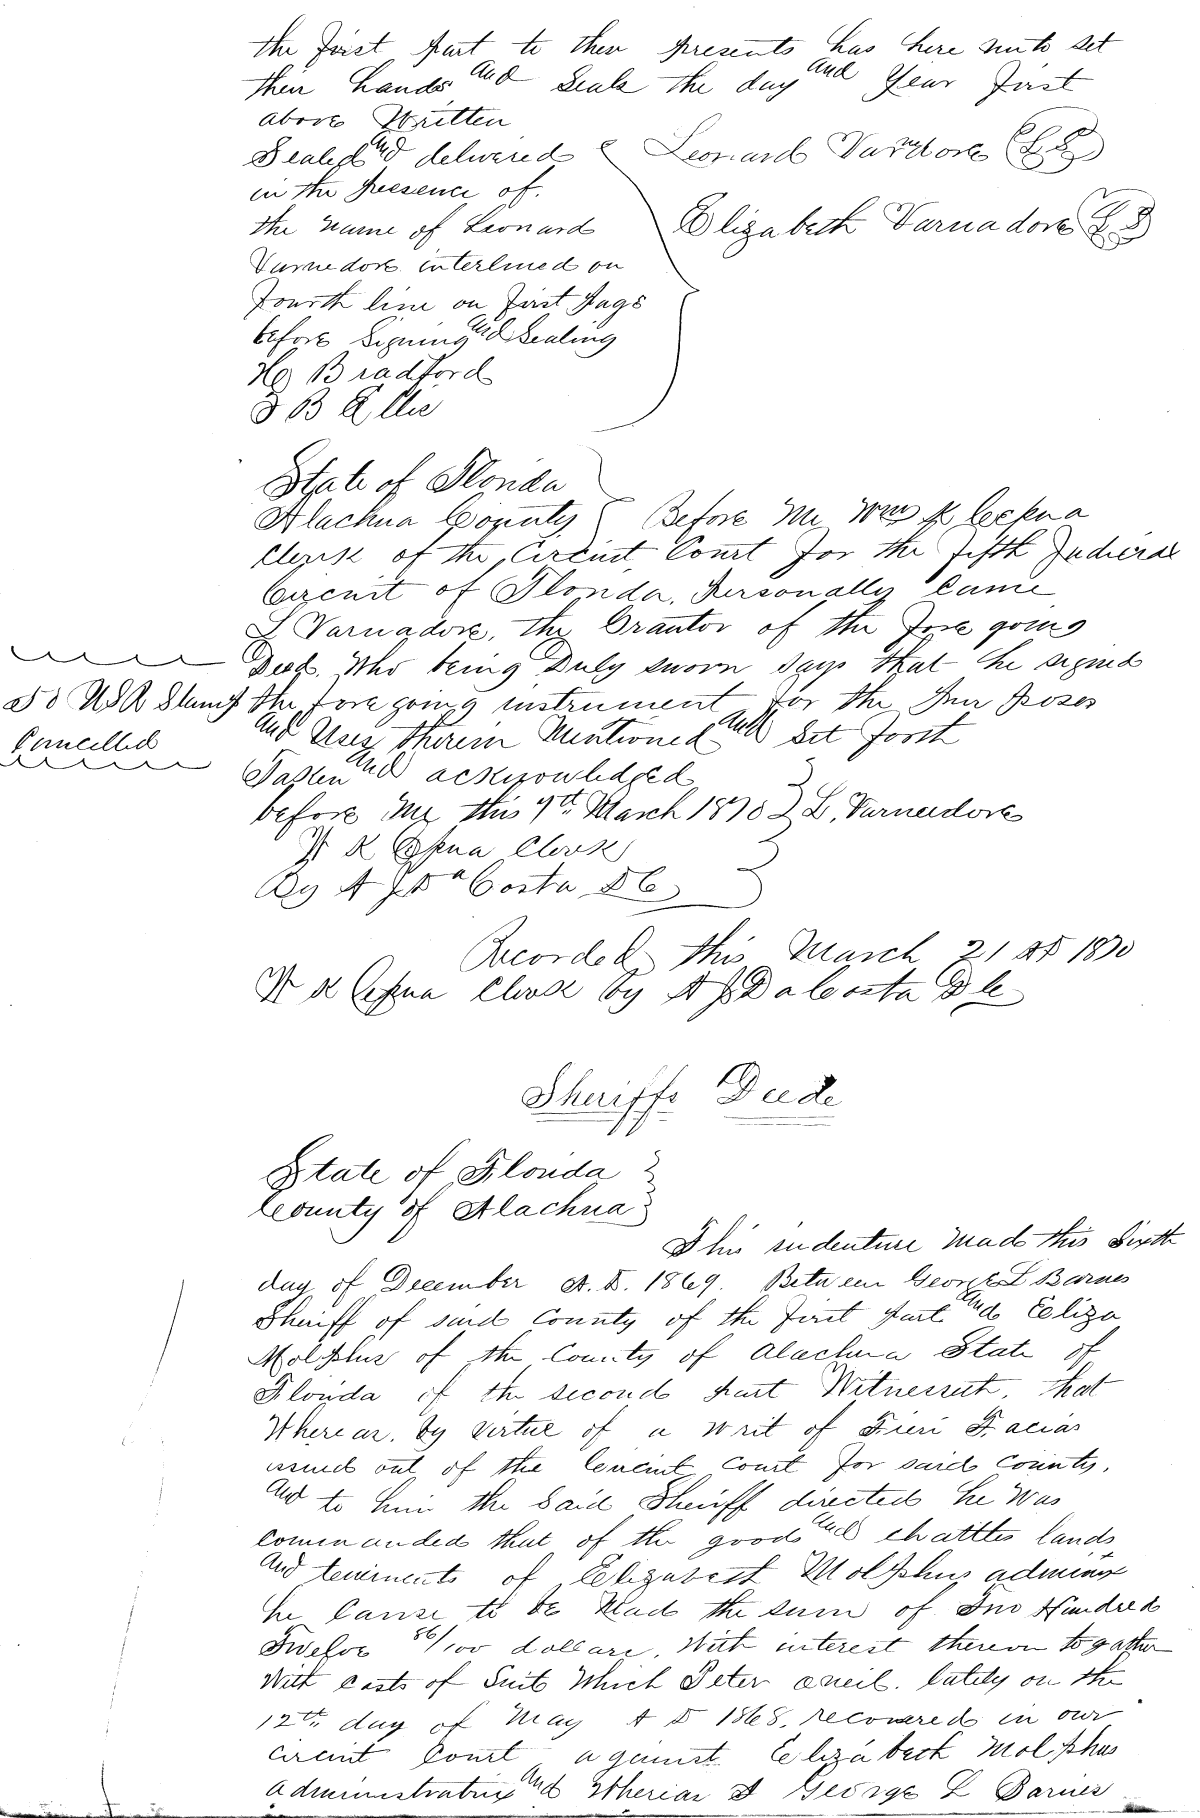 the first part to these presents has here unto set
their hands and Seals the day and Year first
above Written
Sealed and delivered Leonard Varndore (LS)
in the presence of.
the name of Leonard Elizabeth Varnadore (LS)
Varnedore interlined on
fourth line on first page
before Signing and Sealing
H Bradford
B Ellis
State of Florida
Alachua County Before Me Wm K Cessna
Clerk of the Circuit Court for the fifth Judicial
Circuit of Florida, Personally Came
L Varnadore, the Grantor of the fore going
Deed, Who being Duly sworn says that he signed
50 USR Stamp the foregoing instrument for the Purposes
and Uses therein Mentioned and Set forth
Cancelled
Taken and acknowledged
before Me this 9th March 1870 L. Varnedore
W K Cessna Clerk
By A J Da Costa D C
Recorded this March 21 AD 1870
W K Cessna Clerk by A J DaCosta D C
Sheriffs Deede
State of Florida
County of Alachua
This indenture Made this Sixth
day of December A.D. 1869. Between George L Barnes
Sheriff of said County of the first part and Eeliza
Molphus of the County of Alachua State of
Florida of the second part Witnesseth, that
Whereas, by virtue of a writ of Fieri Facias
issued out of the Circuit Court for said County,
and to him the Said Sheriff directed he Was
commanded that of the goods and chattles lands
and teniments of Elizabeth Molphus adminx
he Cause to be Made the sum of Two Hundred
Twelve 86/100 dollars, With interest thereon togather
With Costs of Suit Which Peter oneil. lately on the
12th day of May A D 1868, recovered in our
circuit Court against Eelizabeth Molphus
administratrix and Whereas I George L Barnes